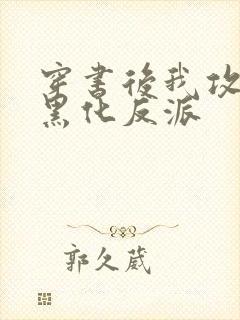 穿書後我攻
黑化反派
郭久葳